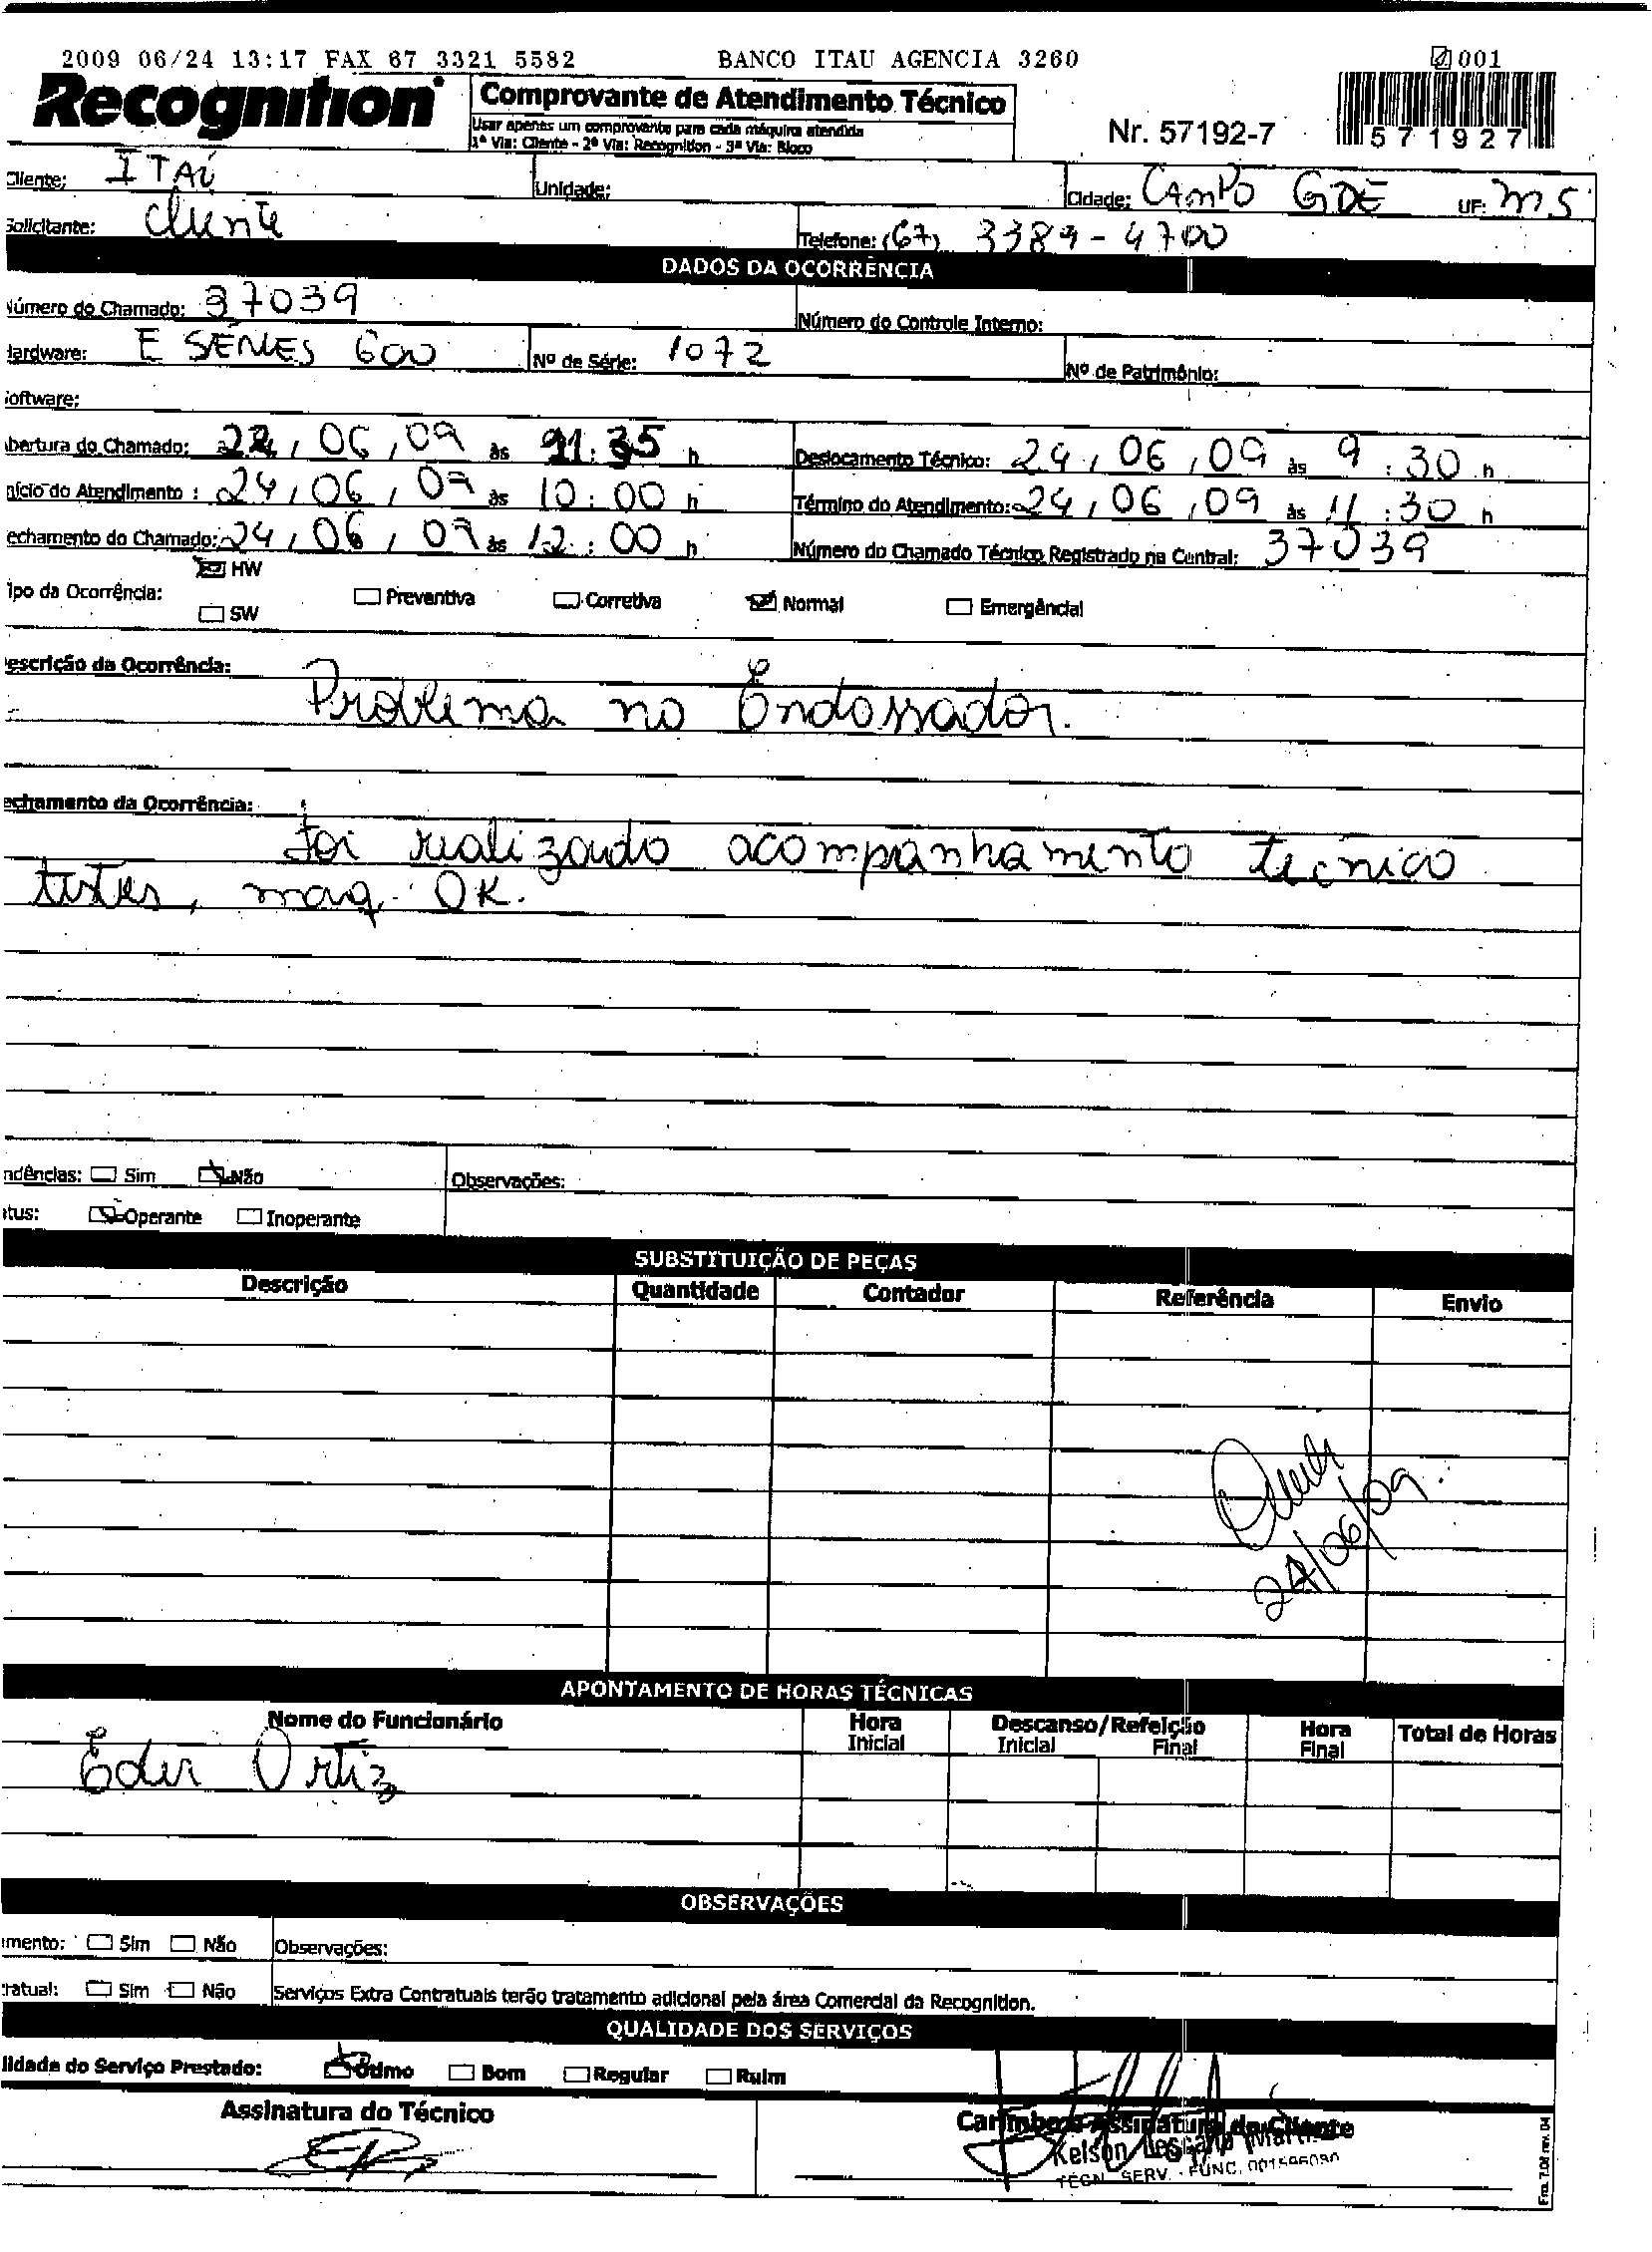 2009 06/24 13:17 FAX 67 3321 5582 BANCO ITAU AGENCIA 3260 001
Recognition Comprovante de Atendimento Técnico
Usar apenas um comprovante para cada máquina atendida
1ª Via: Cliente - 2ª Via: Recognition - 3ª Via: Bloco
Nr. 57192-7 571927
Cliente: ITAÚ Unidade: Cidade: CAMPO GDE UF: MS
Solicitante: Cliente Telefone: (67) 3389-4700
DADOS DA OCORRÊNCIA
Número do Chamado: 37039 Número do Controle Interno:
Hardware: E SERIES 600 Nº de Série: 1072 Nº de Patrimônio:
Software:
bertura do Chamado: 06/09 às h Deslocamento Técnico: 24/06/09 às 9:30 h
nício do Atendimento: 24/06/09 às 10:00 h Término do Atendimento: 24/06/09 às 11:30 h
echamento do Chamado: 24/06/09 às 12:00 h Número do Chamado Técnico Registrado na Central: 37039
ipo da Ocorrência: HW SW Preventiva Corretiva Normal Emergêncial
escrição da Ocorrência:
Problema no Endossador.
echamento da Ocorrência:
foi realizado acompanhamento tecnico
testes, maq. OK.
ndências: Sim Não Observações:
atus: Operante Inoperante
SUBSTITUIÇÃO DE PEÇAS
Descrição Quantidade Contador Referência Envio
24/06/09.
APONTAMENTO DE HORAS TÉCNICAS
Nome do Funcionário Hora Inicial Descanso/Refeição Inicial Final Hora Final Total de Horas
Eder Ortiz
OBSERVAÇÕES
mento: Sim Não Observações:
ratual: Sim Não Serviços Extra Contratuais terão tratamento adicional pela área Comercial da Recognition.
QUALIDADE DOS SERVIÇOS
lidade do Serviço Prestado: Ótimo Bom Regular Ruim
Assinatura do Técnico Carimbo e Assinatura do Cliente
Kelson
TÉCN. SERV. - FUNC. 001596090
Frm. 7.08 rev. 04